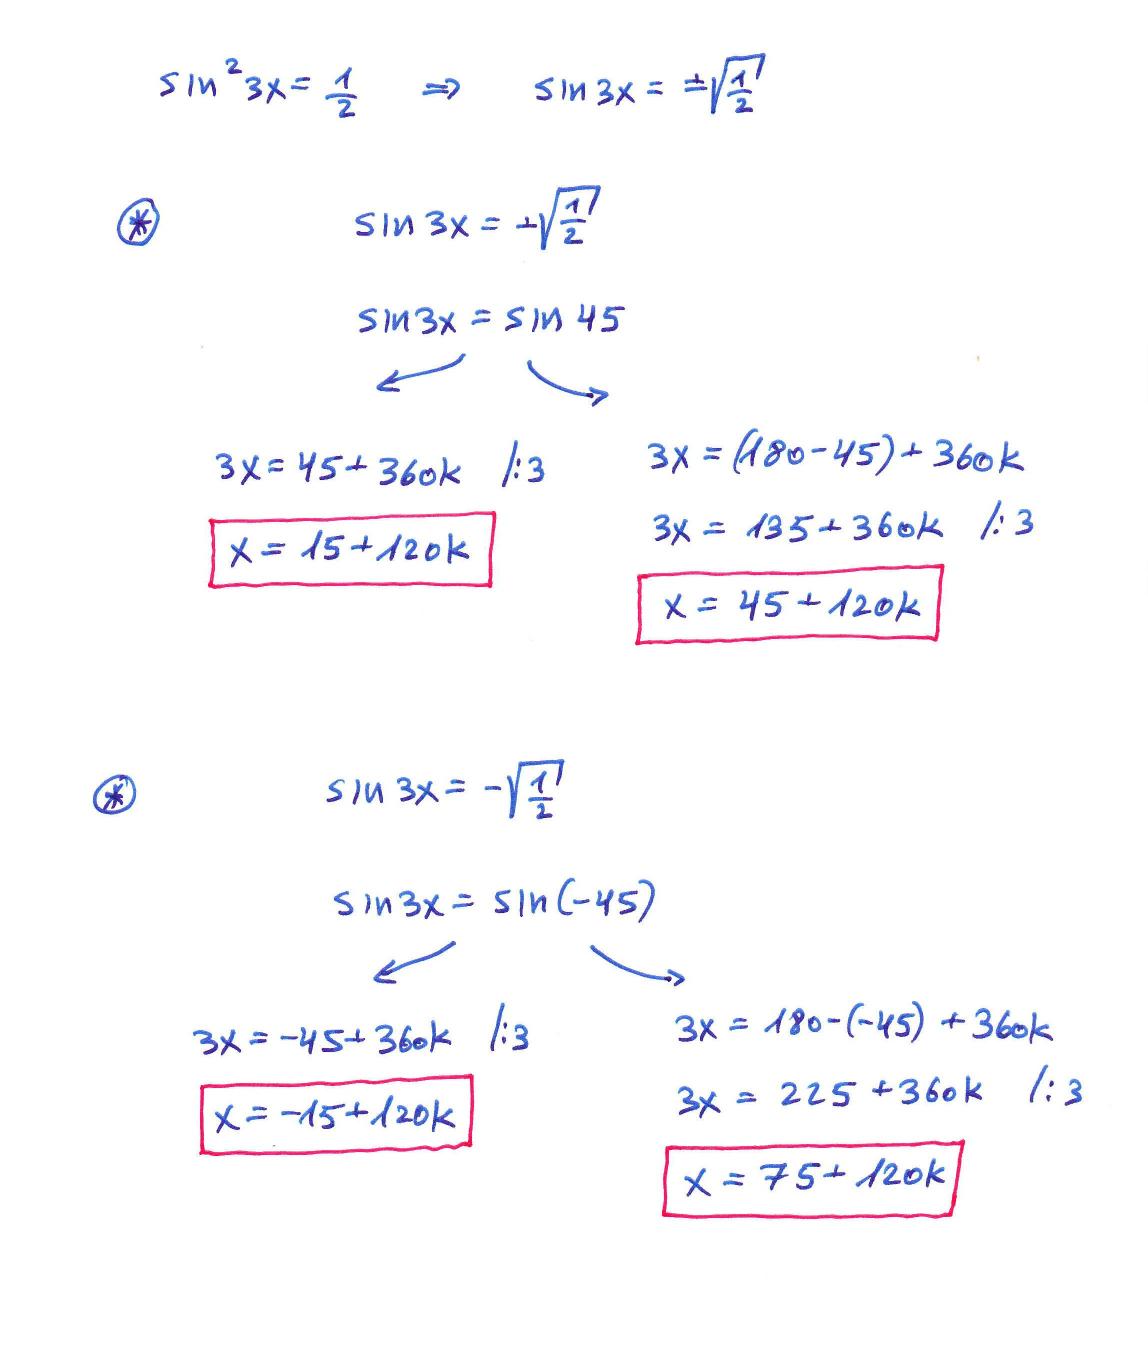 sin²3x = 1/2 ⇒ sin3x = ±√(1/2)
* sin3x = +√(1/2)
sin3x = sin 45
3x = 45 + 360k /:3
x = 15 + 120k
3x = (180 - 45) + 360k
3x = 135 + 360k /:3
x = 45 + 120k
* sin3x = -√(1/2)
sin3x = sin(-45)
3x = -45 + 360k /:3
x = -15 + 120k
3x = 180 - (-45) + 360k
3x = 225 + 360k /:3
x = 75 + 120k